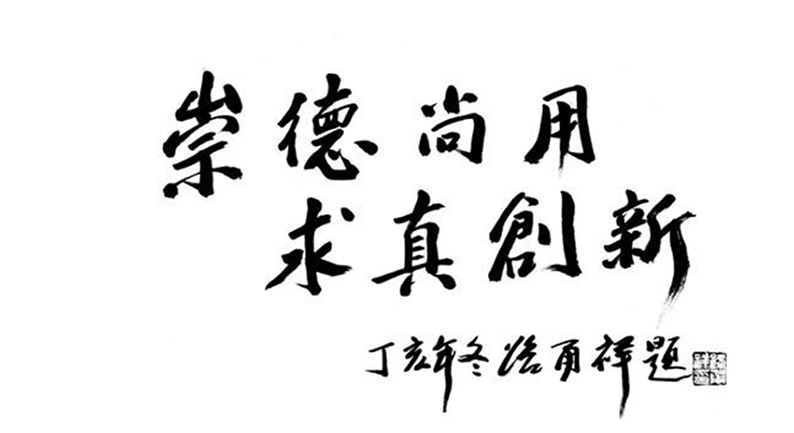 崇德尚用
求真創新
丁亥年冬路甬祥題